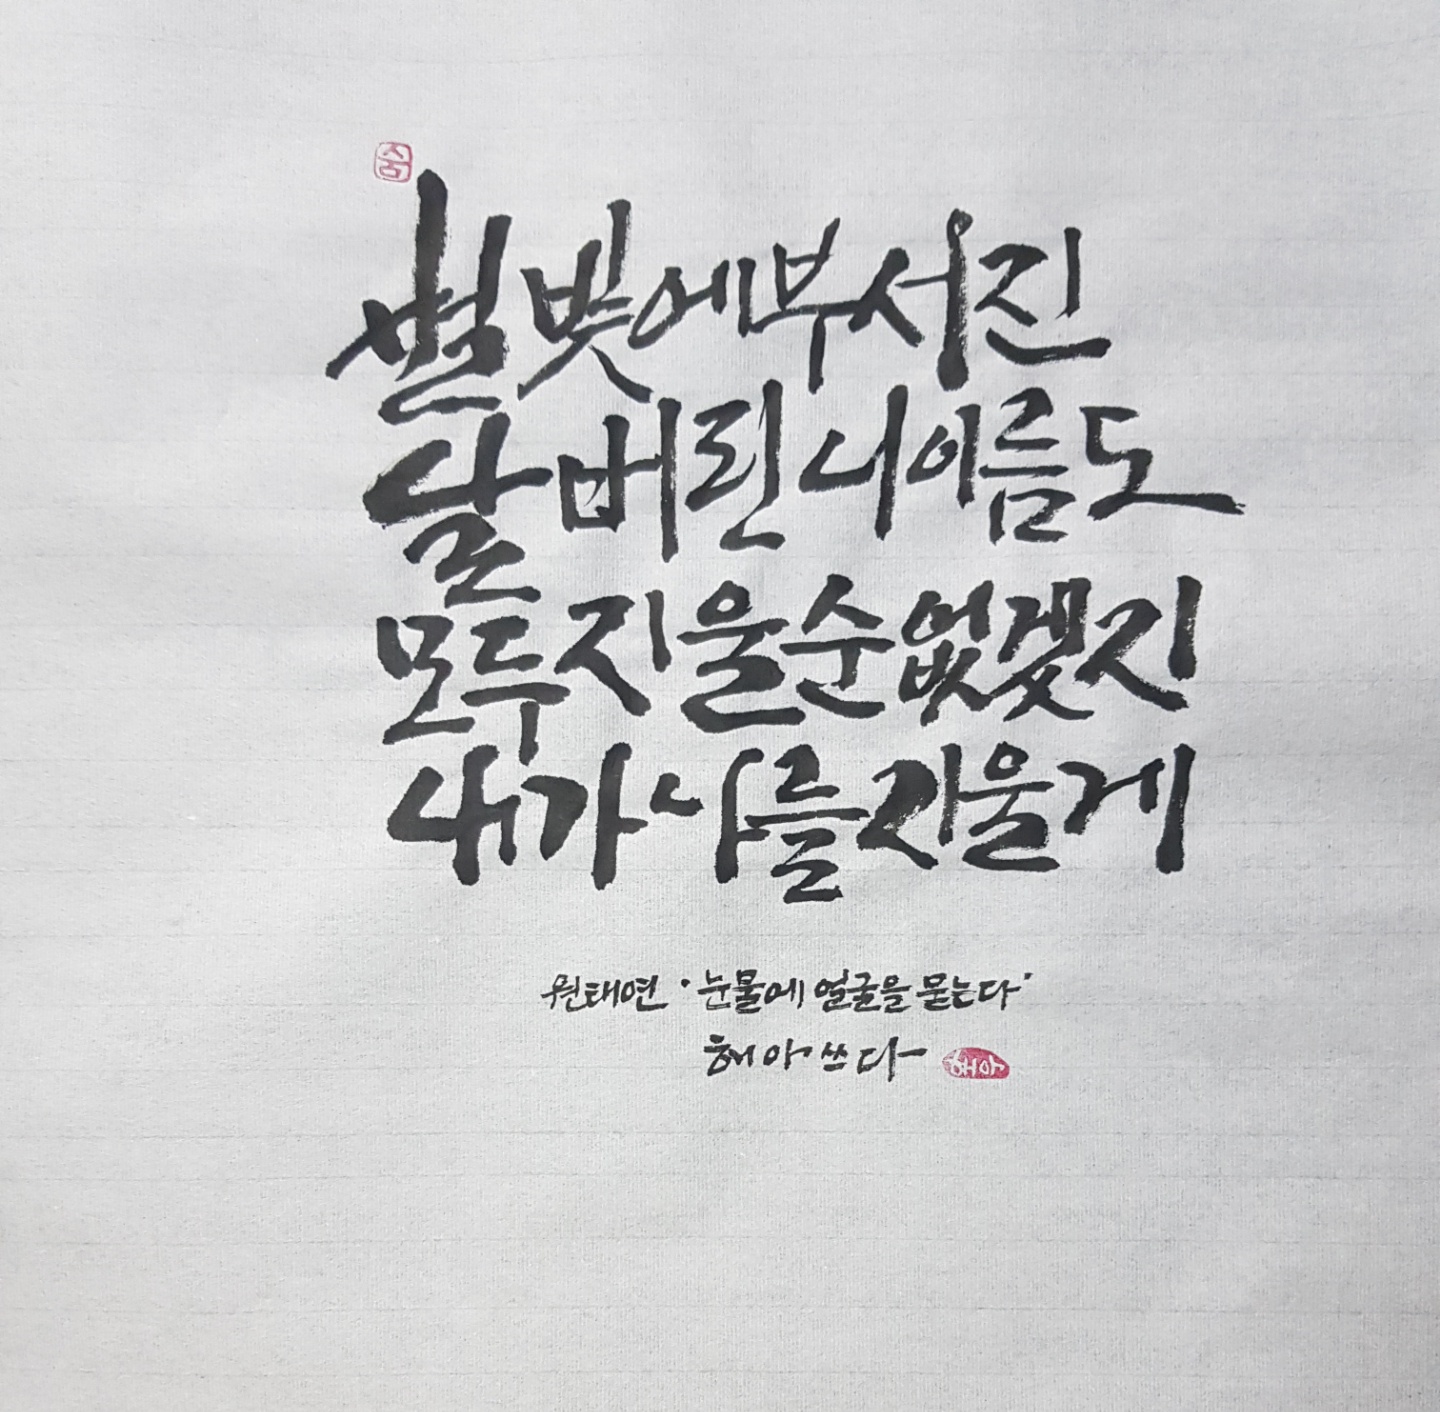 숨
별빛에 부서진
달 버린 니 이름도
모두 지울 순 없겠지
내가 나를 지울게
원태연 '눈물에 얼굴을 묻는다'
해아 쓰다
해아